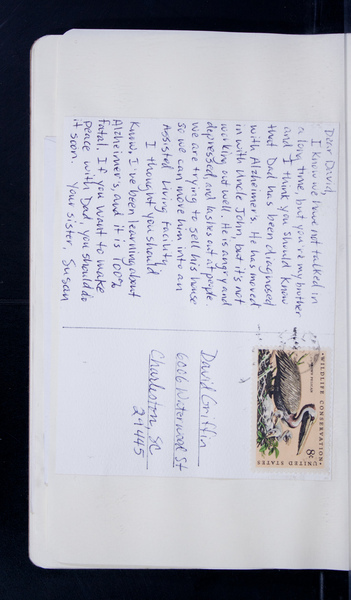 Dear David,
I know we have not talked in
a long time, but you're my brother
and I think you should know
that Dad has been diagnosed
with Alzheimers. He has moved
in with Uncle John, but it's not
working out well. He is angry and
depressed and lashes out at people.
We are trying to sell his house
so we can move him into an
Assisted Living facility.
I thought you should
know, I've been learning about
Alzheimer's, and it is 100%
fatal. If you want to make
peace with Dad, you should do
it soon.
Your sister, Susan
WILDLIFE CONSERVATION
UNITED STATES
8c
David Griffin
6006 Waterwood St
Charleston, SC
29445